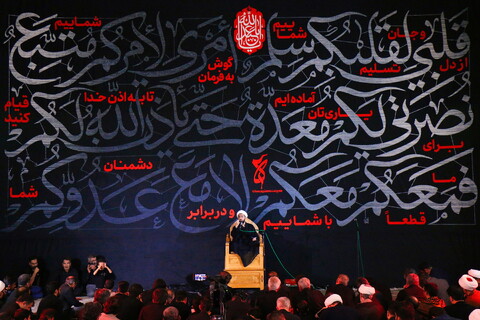 قلبي لقلبكم سلم أمري لأمركم متبع
از دل وجان تسلیم گوش به فرمان شماییم
نصرتي لكم معدة حتى يأذن الله لكم
برای یاری‌تان آماده‌ایم تا به اذن خدا قیام کنید
فمعكم معكم لا مع عدوكم
ما قطعاً با شماییم و در برابر دشمنان شما